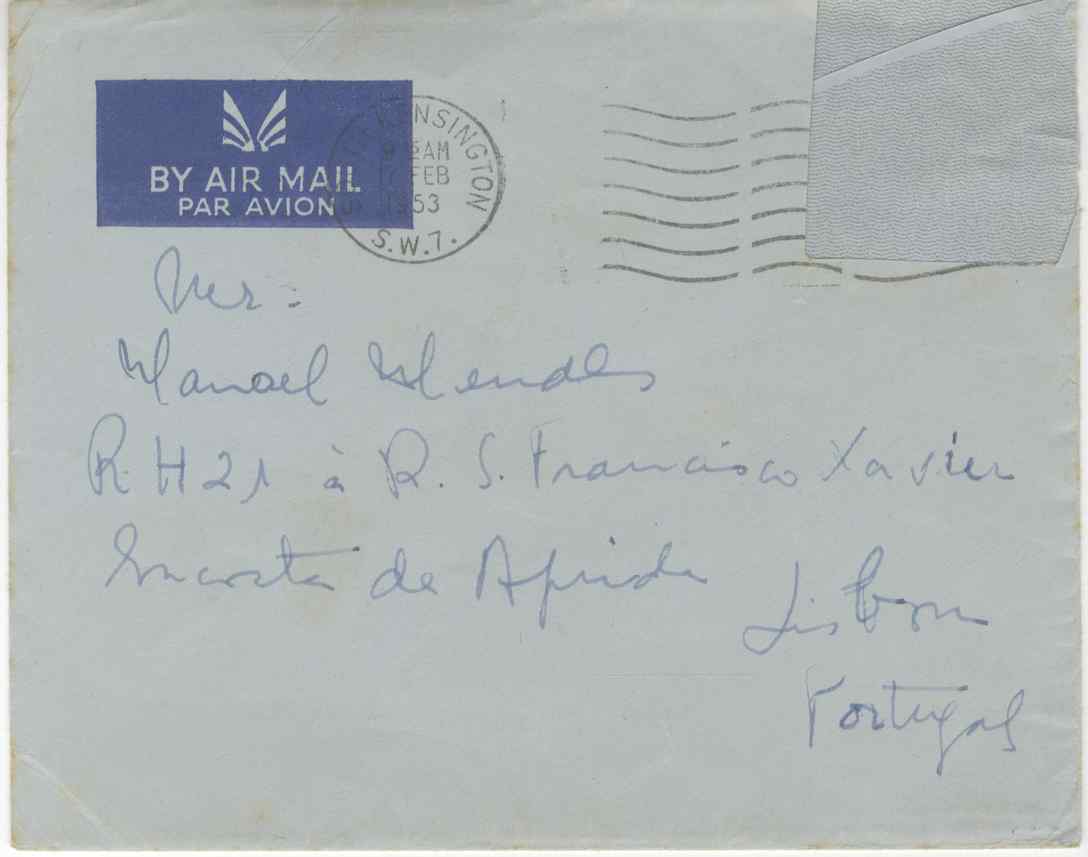 BY AIR MAIL
PAR AVION
KENSINGTON
AM
FEB
1953
S.W.7.
Mer :
Manoel Mendes
R. H 21 à R. S. Francisco Xavier
Encosta da Ajuda
Lisboa
Portugal